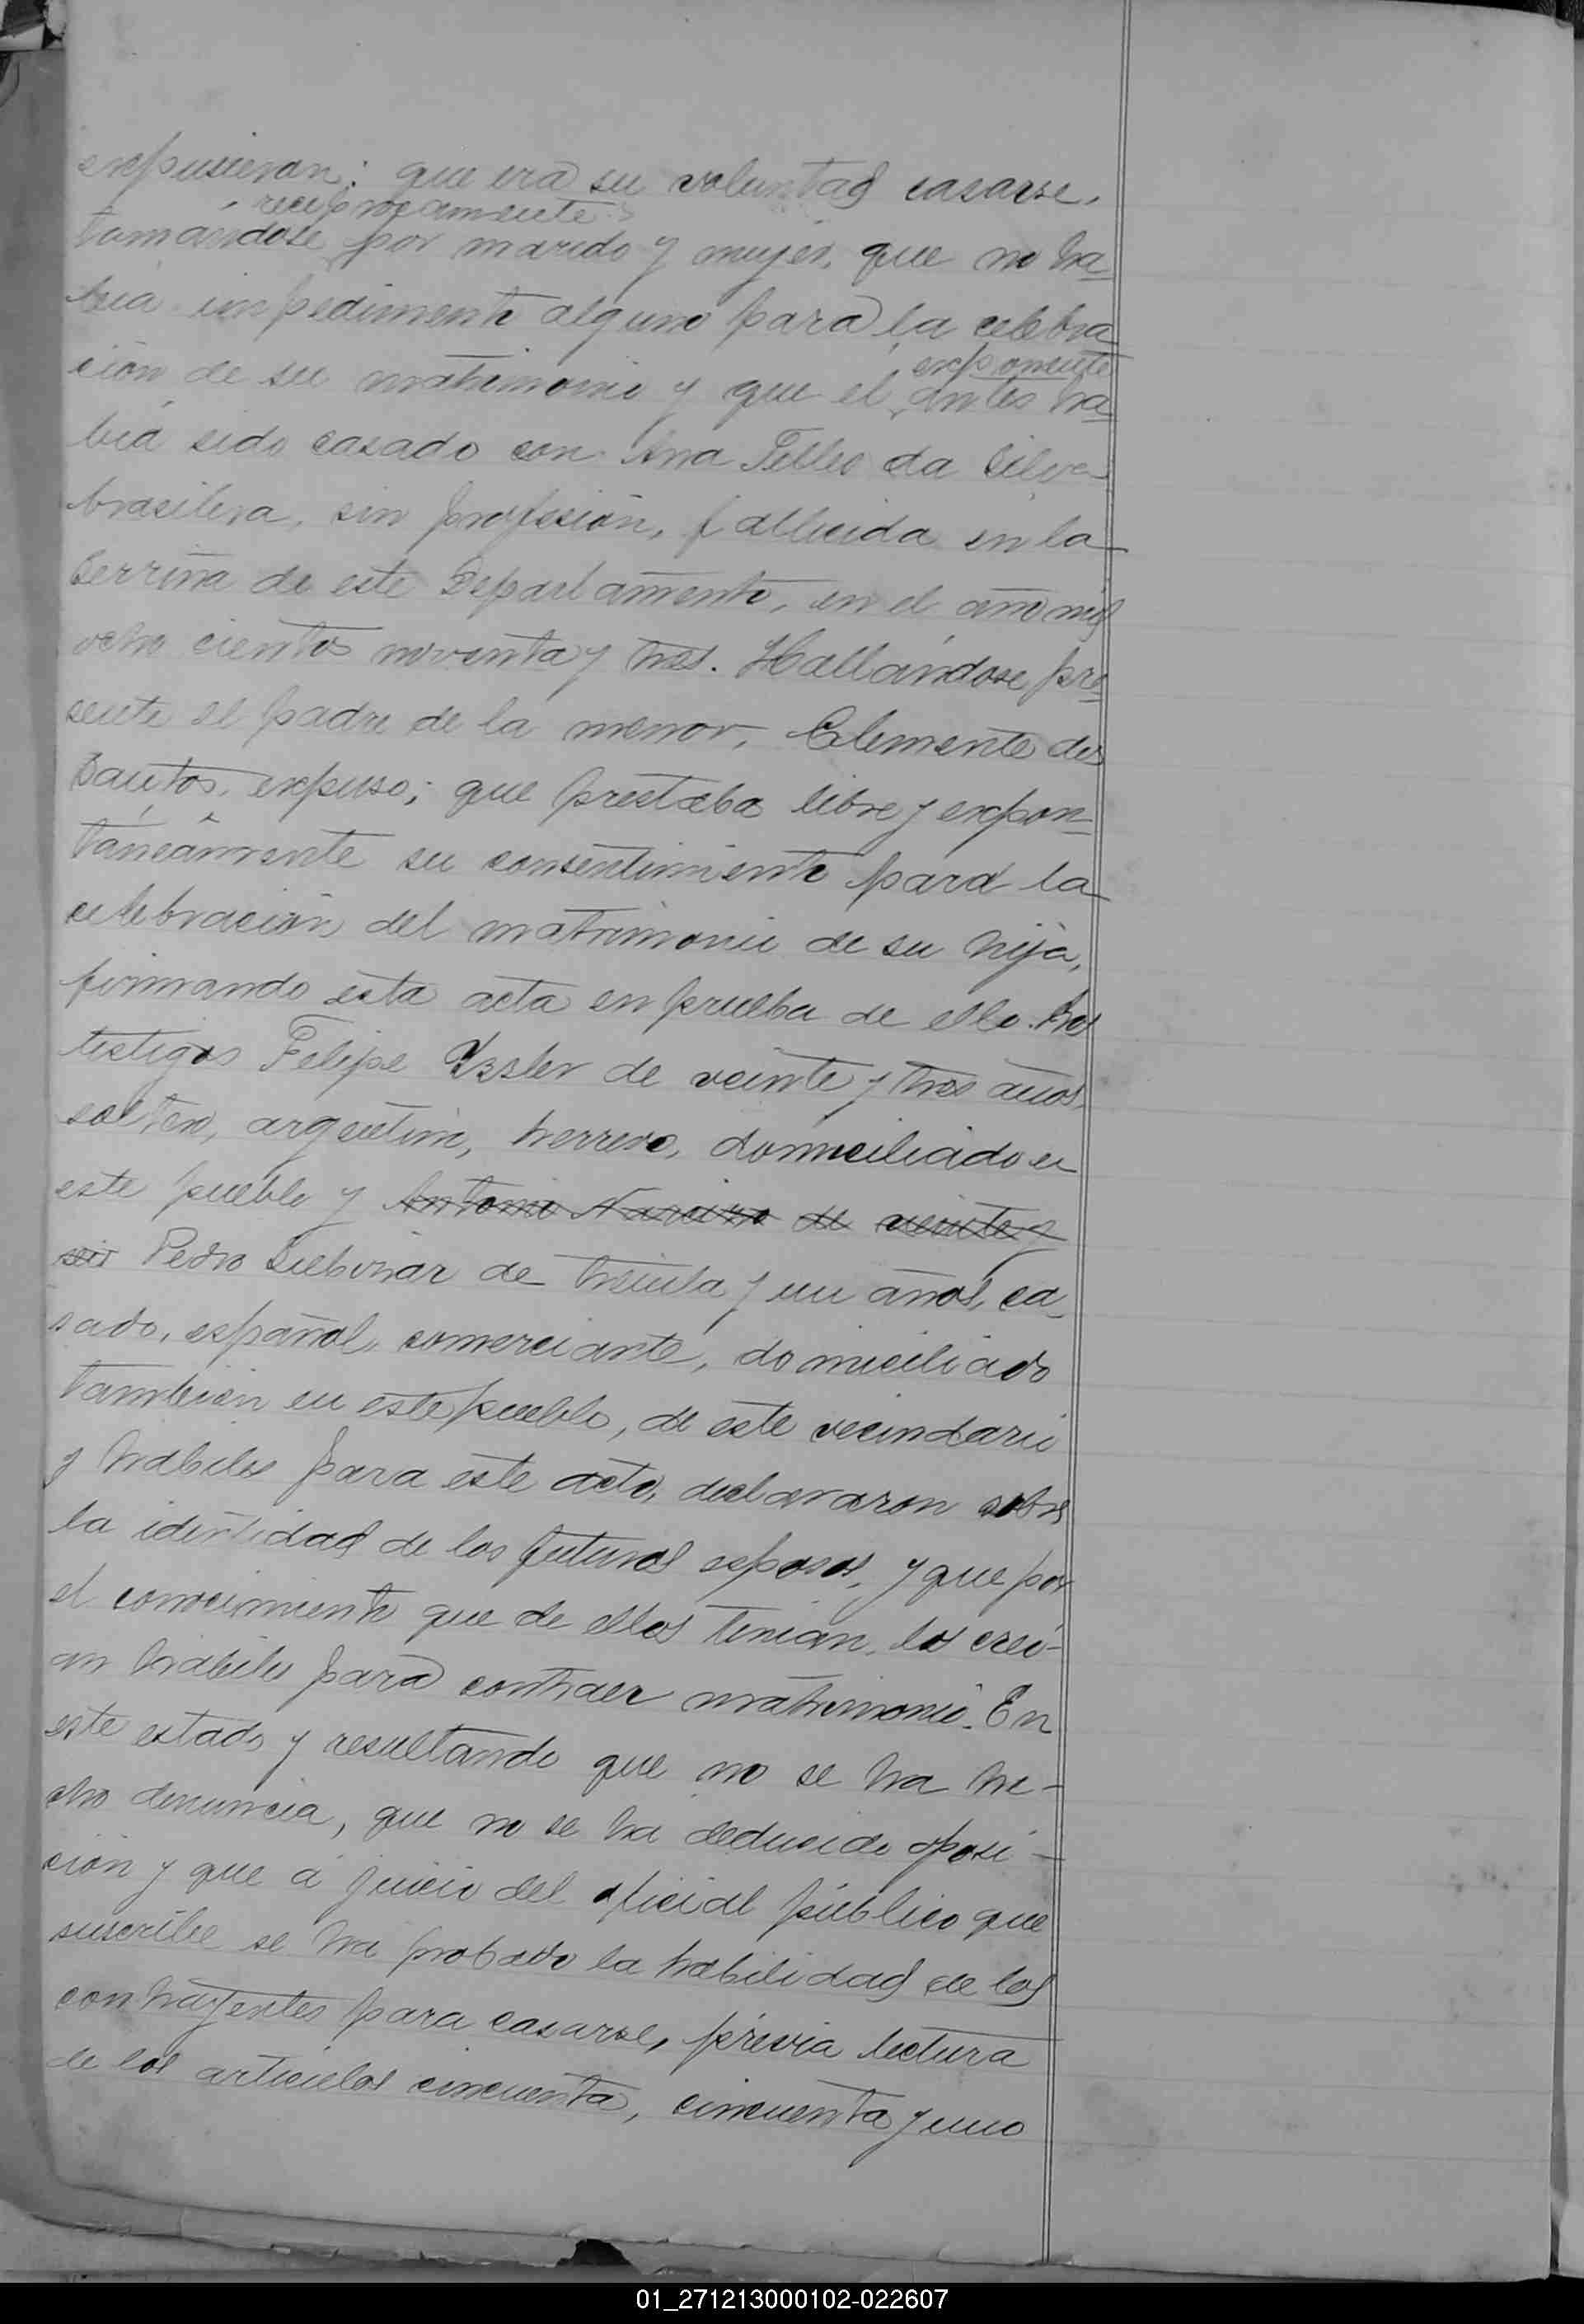 expusieron: que era su voluntad casarse,
recíprocamente
tomándose por marido y mujer, que no ha
bía impedimento alguno para la celebra
exponente
ción de su matrimonio y que el antes ha
bía sido casado con Ana Telles da Silva
brasilera, sin profesión, fallecida en la
Serrina de este Departamento, en el año mil
ocho cientos noventa y tres. Hallándose pre
sente el padre de la menor, Clemente dos
Santos, expuso; que prestaba libre y expon-
táneamente su consentimiento para la
celebración del matrimonio de su hija,
firmando esta acta en prueba de ello. Los
testigos Felipe de veinte y tres años,
soltero, argentino, herrero, domiciliado en
este pueblo y Antonio de veinte y
seis Pedro de treinta y un años, ca
sado, español, comerciante, domiciliado
tambien en este pueblo, de este vecindario
y hábiles para este acto, declararon sobre
la identidad de los futuros esposos, y que por
el conocimiento que de ellos tenían, los creí-
an hábiles para contraer matrimonio. En
este estado y resultando que no se ha he-
cho denuncia, que no se ha deducido oposi-
ción y que á juicio del oficial público que
suscribe se ha probado la habilidad de los
contrayentes para casarse, prévia lectura
de los artículos cincuenta, cincuenta y uno
01_271213000102-022607